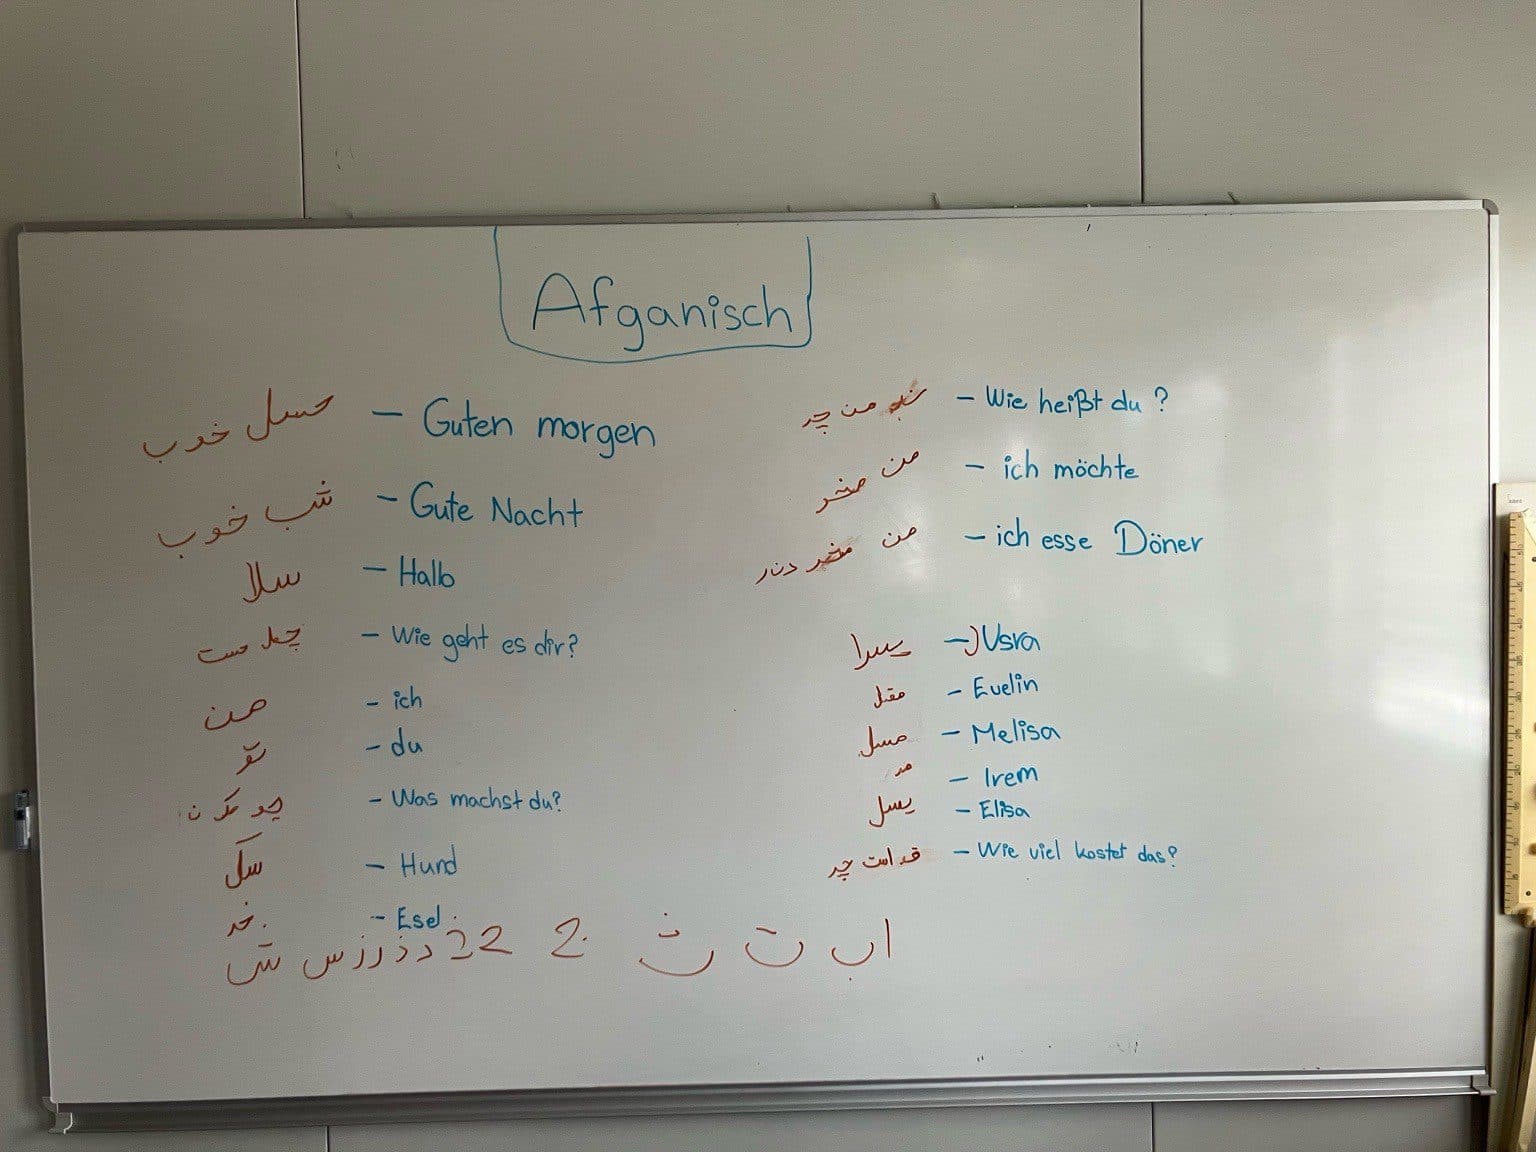 Afganisch
حسل خوب – Guten morgen
شب خوب – Gute Nacht
سلا – Hallo
– Wie geht es dir?
من – ich
تو – du
– Was machst du?
سگ – Hund
خر – Esel
من چر – Wie heißt du?
من – ich möchte
من دنر – ich esse Döner
يسرا – Usra
– Evelin
مسل – Melisa
مر – Irem
يسل – Elisa
قد است چر – Wie viel kostet das?
ا ب ت ث ج ح خ د ذ ر ز س ش